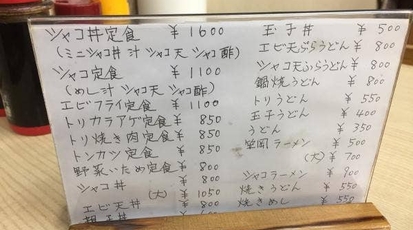 シャコ丼定食 ¥1600
(ミニシャコ丼 汁 シャコ天 シャコ酢)
シャコ定食 ¥1100
(めし 汁 シャコ天 シャコ酢)
エビフライ定食 ¥1100
トリカラアゲ定食 ¥850
トリ焼き肉定食 ¥850
トンカツ定食 ¥850
野菜いため定食 ¥800
シャコ丼 ¥800
(大) ¥1050
エビ天丼 ¥800
玉子丼 ¥500
エビ天ぷらうどん ¥800
シャコ天ぷらうどん ¥800
鍋焼うどん ¥800
トリうどん ¥550
玉子うどん ¥400
うどん ¥350
笠岡ラーメン ¥500
(大) ¥700
シャコラーメン ¥900
焼きうどん ¥550
焼きめし ¥550